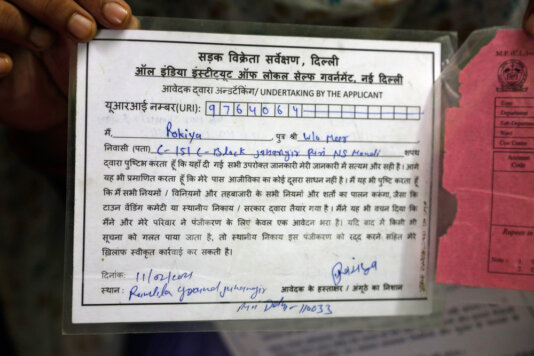 सड़क विक्रेता सर्वेक्षण, दिल्ली
ऑल इंडिया इंस्टीट्यूट ऑफ लोकल सेल्फ गवर्नमेंट, नई दिल्ली
आवेदक द्वारा अन्डरटेकिंग/ UNDERTAKING BY THE APPLICANT
यूआरआई नम्बर(URI): 9764064
मैं, Rokiya पुत्र श्री W/o Meer
निवासी (पता) C-151 C-Block Jahangir Puri NS Mandi
द्वारा पुष्टिष करता हूँ कि यहाँ दी गई सभी उपरोक्त जानकारी मेरी जानकारी में सत्यम और सही है। आगे
यह भी प्रमाणित करता हूँ कि मेरे पास आजीविका का कोई दूसरा साधन नहीं है। मैं यह भी पुष्टि करता हूँ
कि मैं सभी नियमों / विनियमों और तहबाजारी के सभी नियमों और शर्तों का पालन करूंगा, जैसा कि
टाउन वेंडिंग कमेटी या स्थानीय निकाय / सरकार द्वारा तैयार गया है। मैंने यह भी वचन दिया कि
मैंने और मेरे परिवार ने पंजीकरण के लिए केवल एक आवेदन भरा है। यदि बाद में किसी भी
सूचना को गलत पाया जाता है, तो स्थानीय निकाय इस पंजीकरण को रद्द करने सहित मेरे
खिलाफ स्वीकृत कार्रवाई कर सकती है।
दिनांक: 11/02/2021
स्थान: Ramlila Ground Jahangir
आवेदक के हस्ताक्षर / अंगूठे का निशान
110033
Type
Department
Sub Department
Ward
Civic Centre
Account
Code
Rupees in